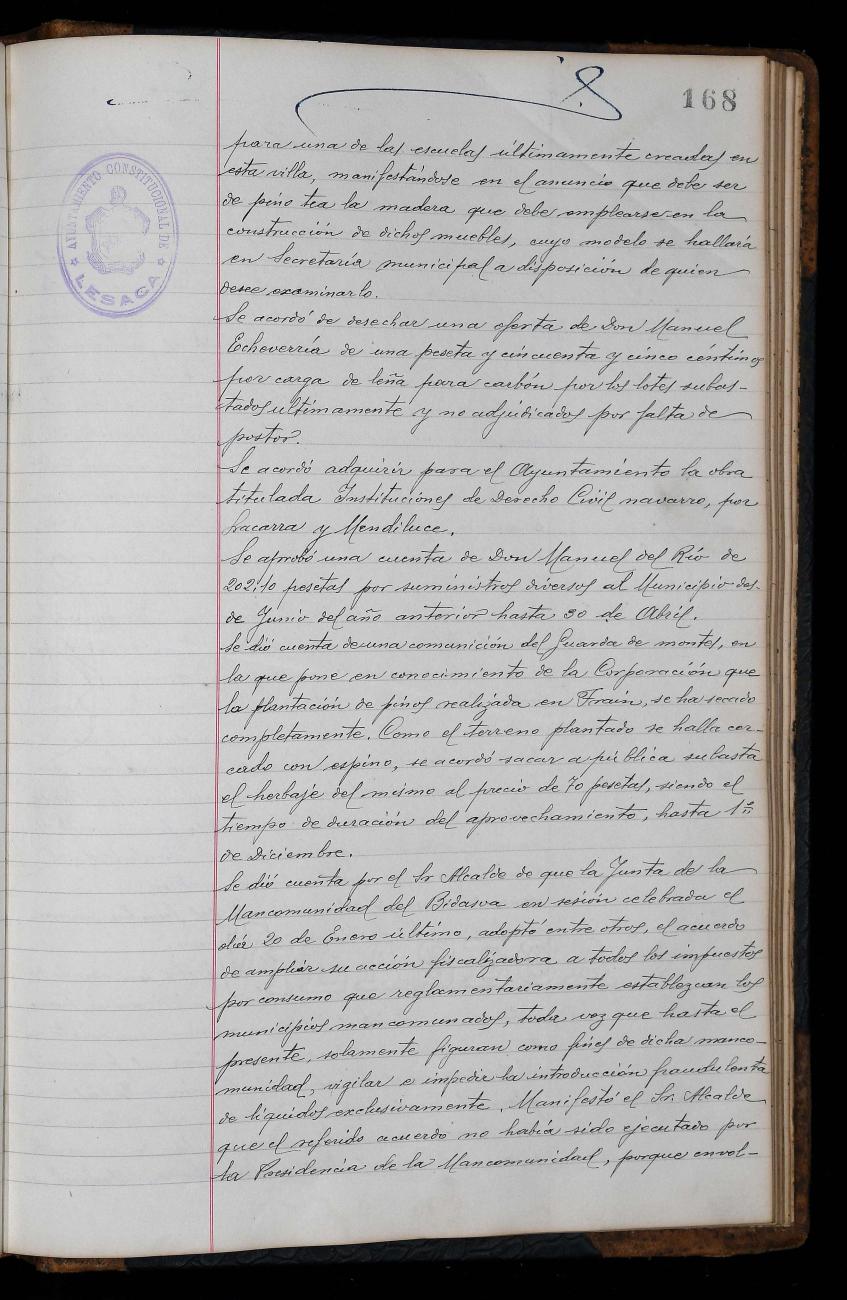 168
AYUNTAMIENTO CONSTITUCIONAL DE
LESACA
para una de las escuelas últimamente creadas en
esta villa, manifestándose en el anuncio que debe ser
de pino tea la madera que debe emplearse en la
construcción de dichos muebles, cuyo modelo se hallará
en Secretaría municipal a disposición de quien
desee examinarlo.
Se acordó de desechar una oferta de Don Manuel
Echeverría de una peseta y cincuenta y cinco céntimos
por carga de leña para carbón por los lotes subas-
tados ultimamente y no adjudicados por falta de
postor.
Se acordó adquirir para el Ayuntamiento la obra
titulada Instituciones de Derecho Civil navarro, por
Lacarra y Mendiluce.
Se aprobó una cuenta de Don Manuel del Río de
202,10 pesetas por suministros diversos al Municipio des-
de Junio del año anterior hasta 30 de Abril.
Se dió cuenta de una comunición del Guarda de montes, en
la que pone en conocimiento de la Corporación que
la plantación de pinos realizada en Frain, se ha secado
completamente. Como el terreno plantado se halla cer-
cado con espino, se acordó sacar a pública subasta
el herbaje del mismo al precio de 70 pesetas, siendo el
tiempo de duración del aprovechamiento, hasta 1º
de Diciembre.
Se dió cuenta por el Sr Alcalde de que la Junta de la
Mancomunidad del Bidasoa en sesión celebrada el
día 20 de Enero último, adoptó entre otros, el acuerdo
de ampliar su acción fiscalizadora a todos los impuestos
por consumo que reglamentariamente establezcan los
municipios mancomunados, toda vez que hasta el
presente, solamente figuran como fines de dicha manco-
munidad, vigilar e impedir la introducción fraudulenta
de líquidos exclusivamente. Manifestó el Sr. Alcalde
que el referido acuerdo no había sido ejecutado por
la Presidencia de la Mancomunidad, porque envol-